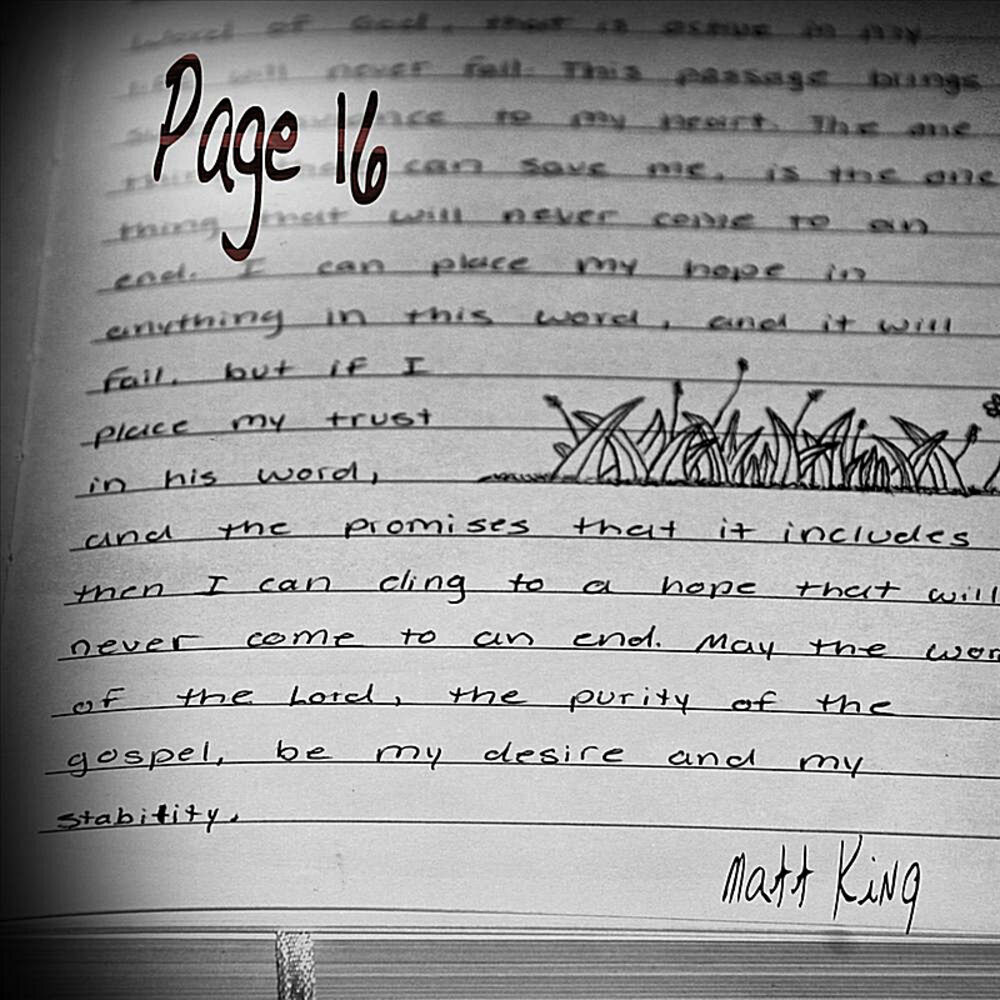 Page 16
word of God, that is active in my
life will never fail. This passage brings
to my heart. The one
can save me, is the one
thing that will never come to an
end. I can place my hope in
anything in this word, and it will
fail. but if I
place my trust
in his word,
and the promises that it includes
then I can cling to a hope that will
never come to an end. May the wor
of the Lord, the purity of the
gospel, be my desire and my
stability.
Matt King